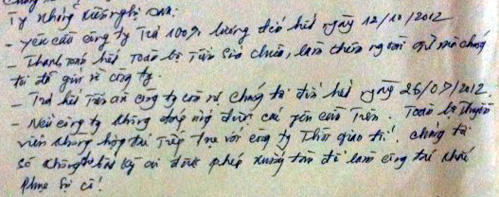 Tự những kiến nghị trên.
- Yêu cầu công ty trả 100% lương đến hết ngày 12/10/2012
- Thanh toán hết toàn bộ tiền giờ chưa, làm thêm ngoài giờ mà chúng
tôi đã gửi về công ty.
- Trả hết tiền ăn công ty còn nợ chúng tôi đến hết ngày 25/09/2012.
- Nếu công ty không đáp ứng được các yêu cầu trên. Toàn bộ thuyền
viên không hợp tác tiếp tục với công ty. Thời gian tới, chúng tôi
sẽ không bất kỳ ai được phép xuống tàu để làm công tác khắc
phục sự cố!